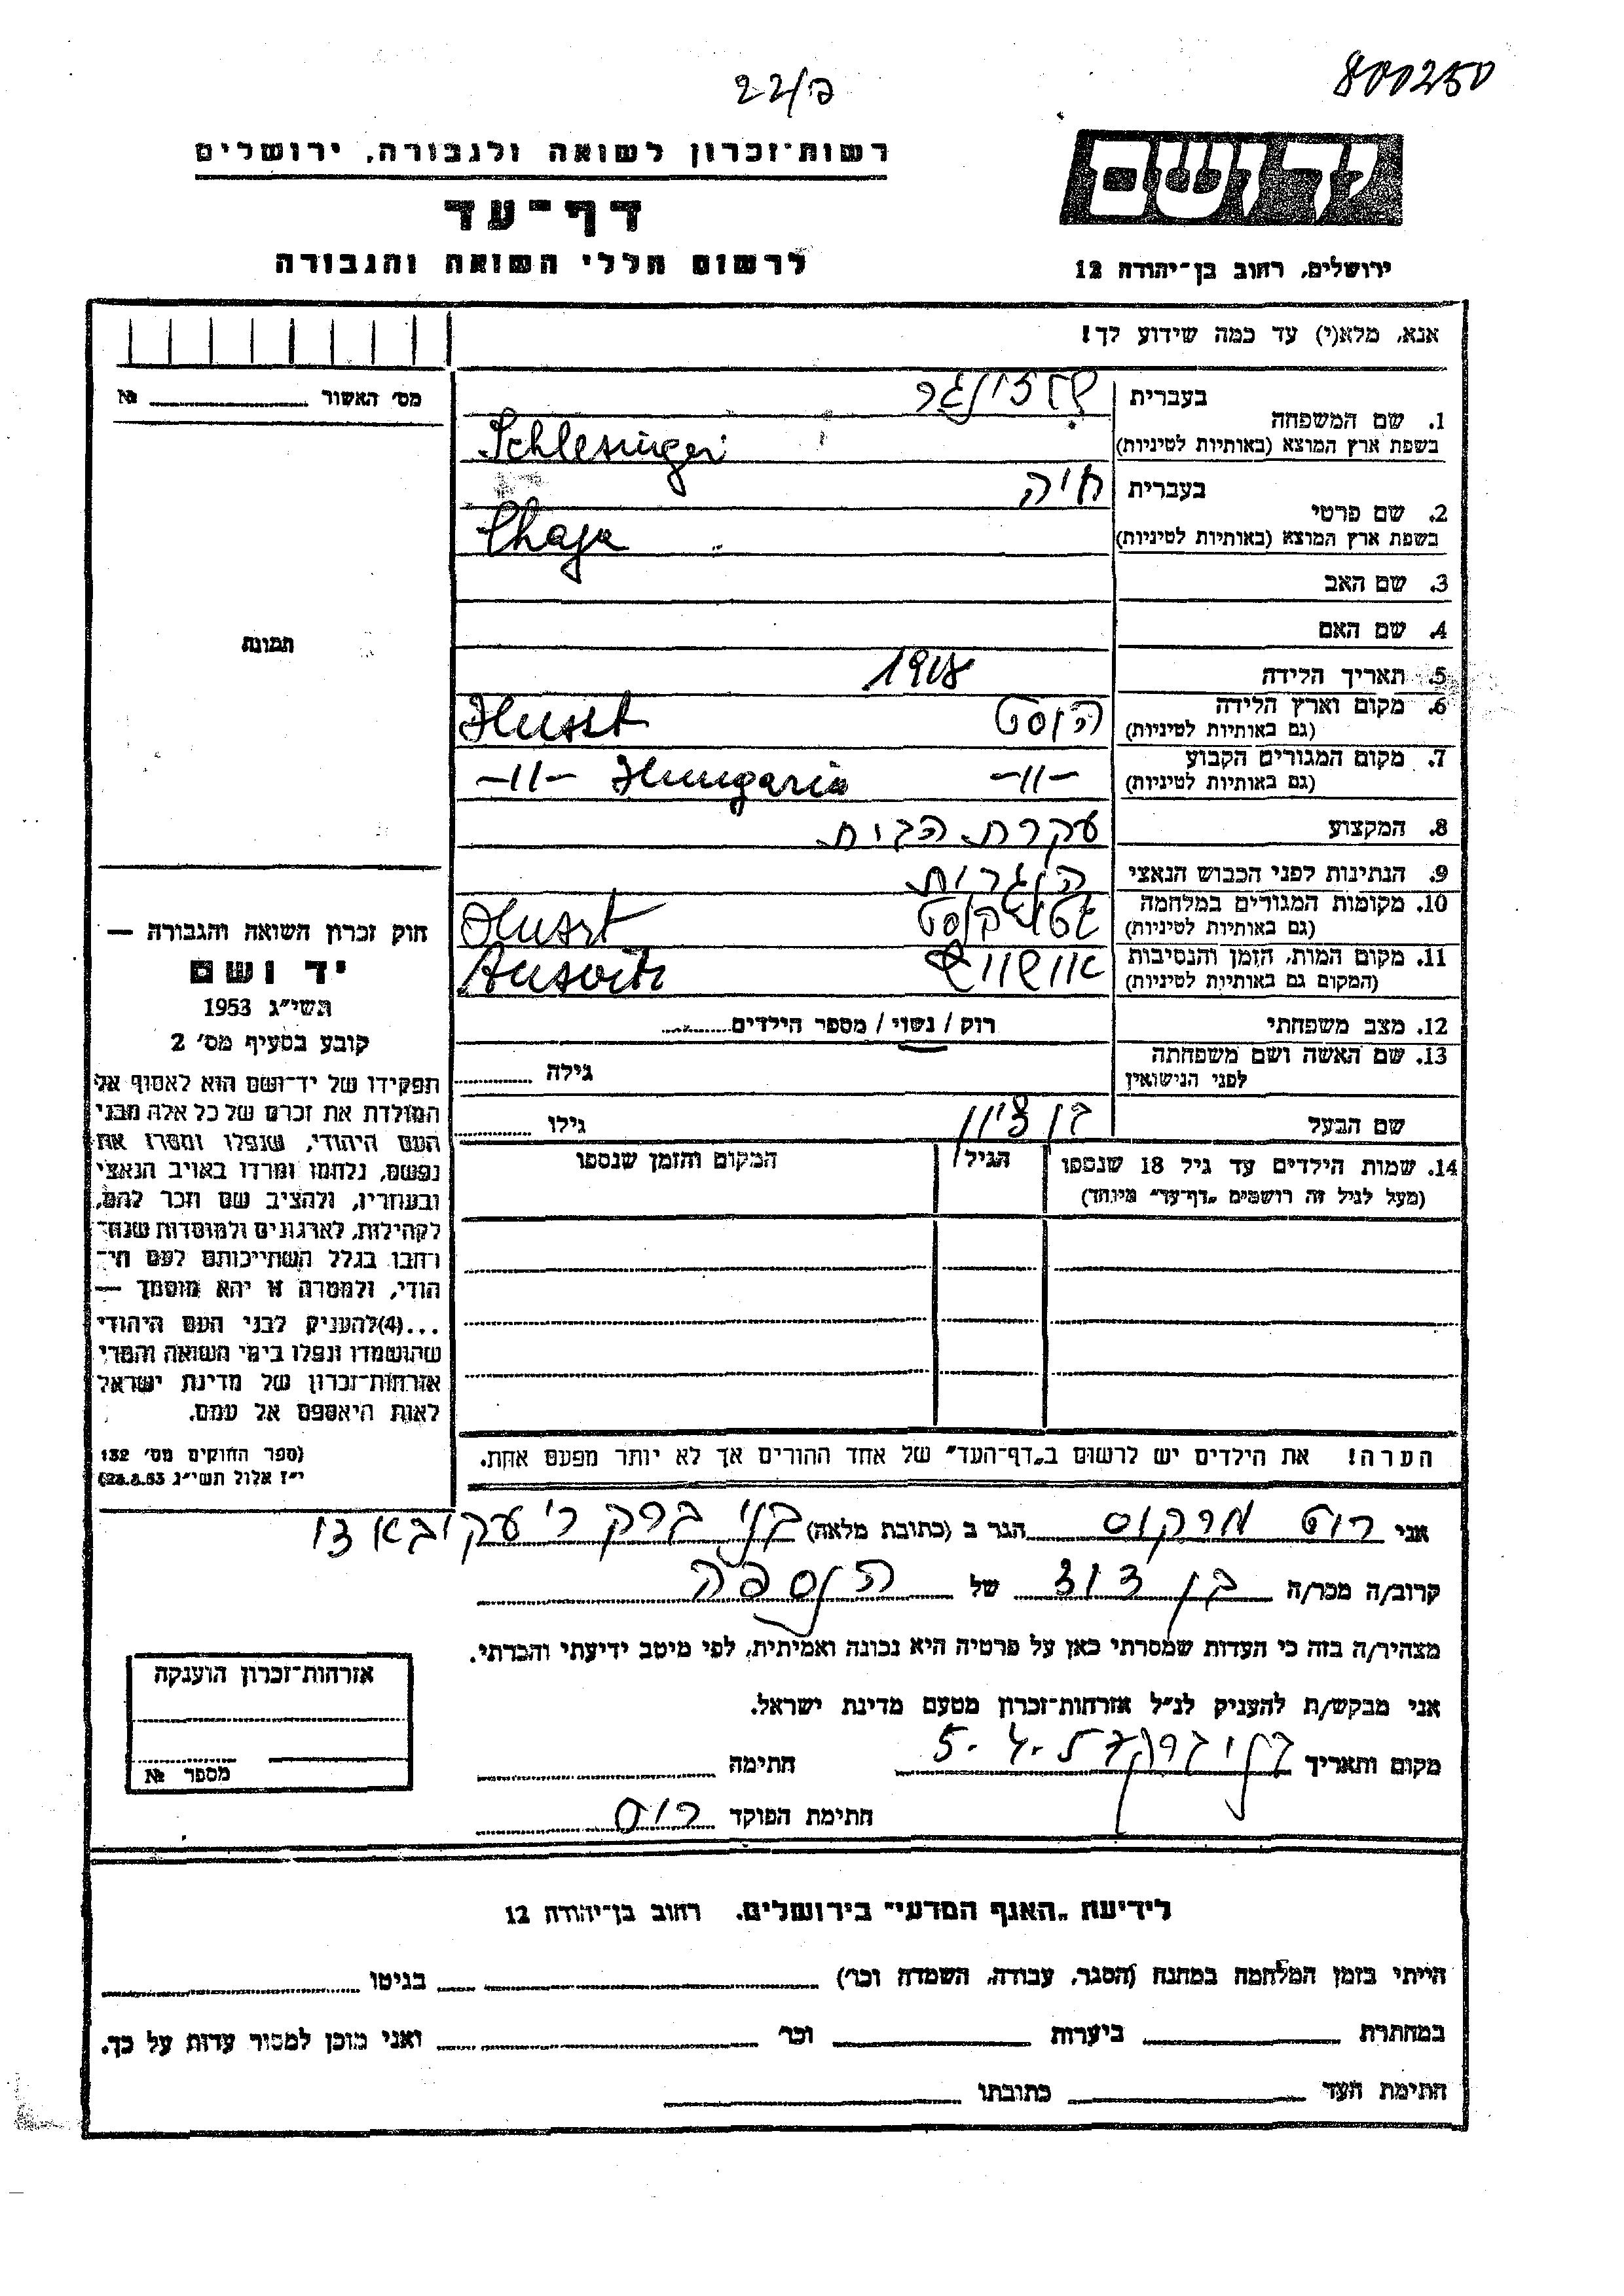 800250
22/ק
רשות־זכרון לשואה ולגבורה, ירושלים
יד ושם
דף־עד
לרשום חללי השואה והגבורה
ירושלים, רחוב בן־יהודה 12
אנא, מלא(י) עד כמה שידוע לך!
מס׳ האשור № 
1. שם המשפחה
בעברית שלזינגר
בשפת ארץ המוצא (באותיות לטיניות) Schlesinger
2. שם פרטי
בעברית חיה
בשפת ארץ המוצא (באותיות לטיניות) Chaja
3. שם האב
4. שם האם
תמונה
5. תאריך הלידה 1918
6. מקום וארץ הלידה הוסט Huszt
(גם באותיות לטיניות)
7. מקום המגורים הקבוע -11- -11- Hungaria
(גם באותיות לטיניות)
8. המקצוע עקרת הבית
9. הנתינות לפני הכבוש הנאצי הונגרית
10. מקומות המגורים במלחמה גטו הוסט Huszt
(גם באותיות לטיניות)
11. מקום המות, הזמן והנסיבות אושוויץ Ausvitz
(המקום גם באותיות לטיניות)
12. מצב משפחתי רוק / נשוי / מספר הילדים
13. שם האשה ושם משפחתה גילה
לפני הנישואין
שם הבעל בן ציון גילו
14. שמות הילדים עד גיל 18 שנספו הגיל המקום והזמן שנספו
(מעל לגיל זה רושמים „דף־עד״ מיוחד)
הערה! את הילדים יש לרשום ב„דף־העד״ של אחד ההורים אך לא יותר מפעם אחת.
חוק זכרון השואה והגבורה —
יד ושם
תשי״ג 1953
קובע בסעיף מס׳ 2
תפקידו של יד־ושם הוא לאסוף אל
המולדת את זכרם של כל אלה מבני
העם היהודי, שנפלו ומסרו את
נפשם, נלחמו ומרדו באויב הנאצי
ובעוזריו, ולהציב שם וזכר להם,
לקהילות, לארגונים ולמוסדות שנח־
רבו בגלל השתייכותם לעם הי־
הודי, ולמטרה זו יהא מוסמך —
...(4)להעניק לבני העם היהודי
שהושמדו ונפלו בימי השואה והמרי
אזרחות־זכרון של מדינת ישראל
לאות היאספם אל עמם.
(ספר החוקים מס׳ 132
י״ז אלול תשי״ג 28.8.53)
אני רוט מרקוס הגר ב (כתובת מלאה) בני ברק ר׳ עקיבא 31
קרוב/ה מכר/ה בן דוד של הנספה
מצהיר/ה בזה כי העדות שמסרתי כאן על פרטיה היא נכונה ואמיתית, לפי מיטב ידיעתי והכרתי.
אני מבקש/ת להעניק לנ״ל אזרחות־זכרון מטעם מדינת ישראל.
מקום ותאריך בני ברק 5.4. חתימה
חתימת הפוקד רוט
אזרחות־זכרון הוענקה
מספר №
לידיעת „האגף המדעי״ בירושלים, רחוב בן־יהודה 12
הייתי בזמן המלחמה במחנה (הסגר, עבודה, השמדה וכו׳) בגיטו
במחתרת ביערות וכו׳ ואני מוכן למסור עדות על כך.
חתימת העד כתובתו